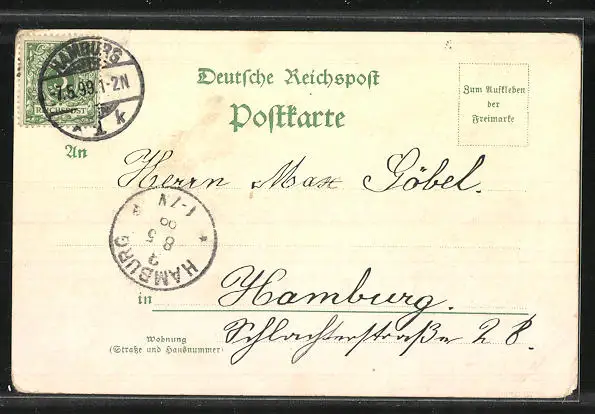 HAMBURG
7.5.99.1-2N
REICHSPOST
1 k
Deutsche Reichspost
Postkarte
Zum Aufkleben
der
Freimarke
An
Herrn Max Göbel.
HAMBURG
8 5
99
1-7N
in Hamburg.
Wohnung
(Straße und Hausnummer)
Schlachterstraße 28.